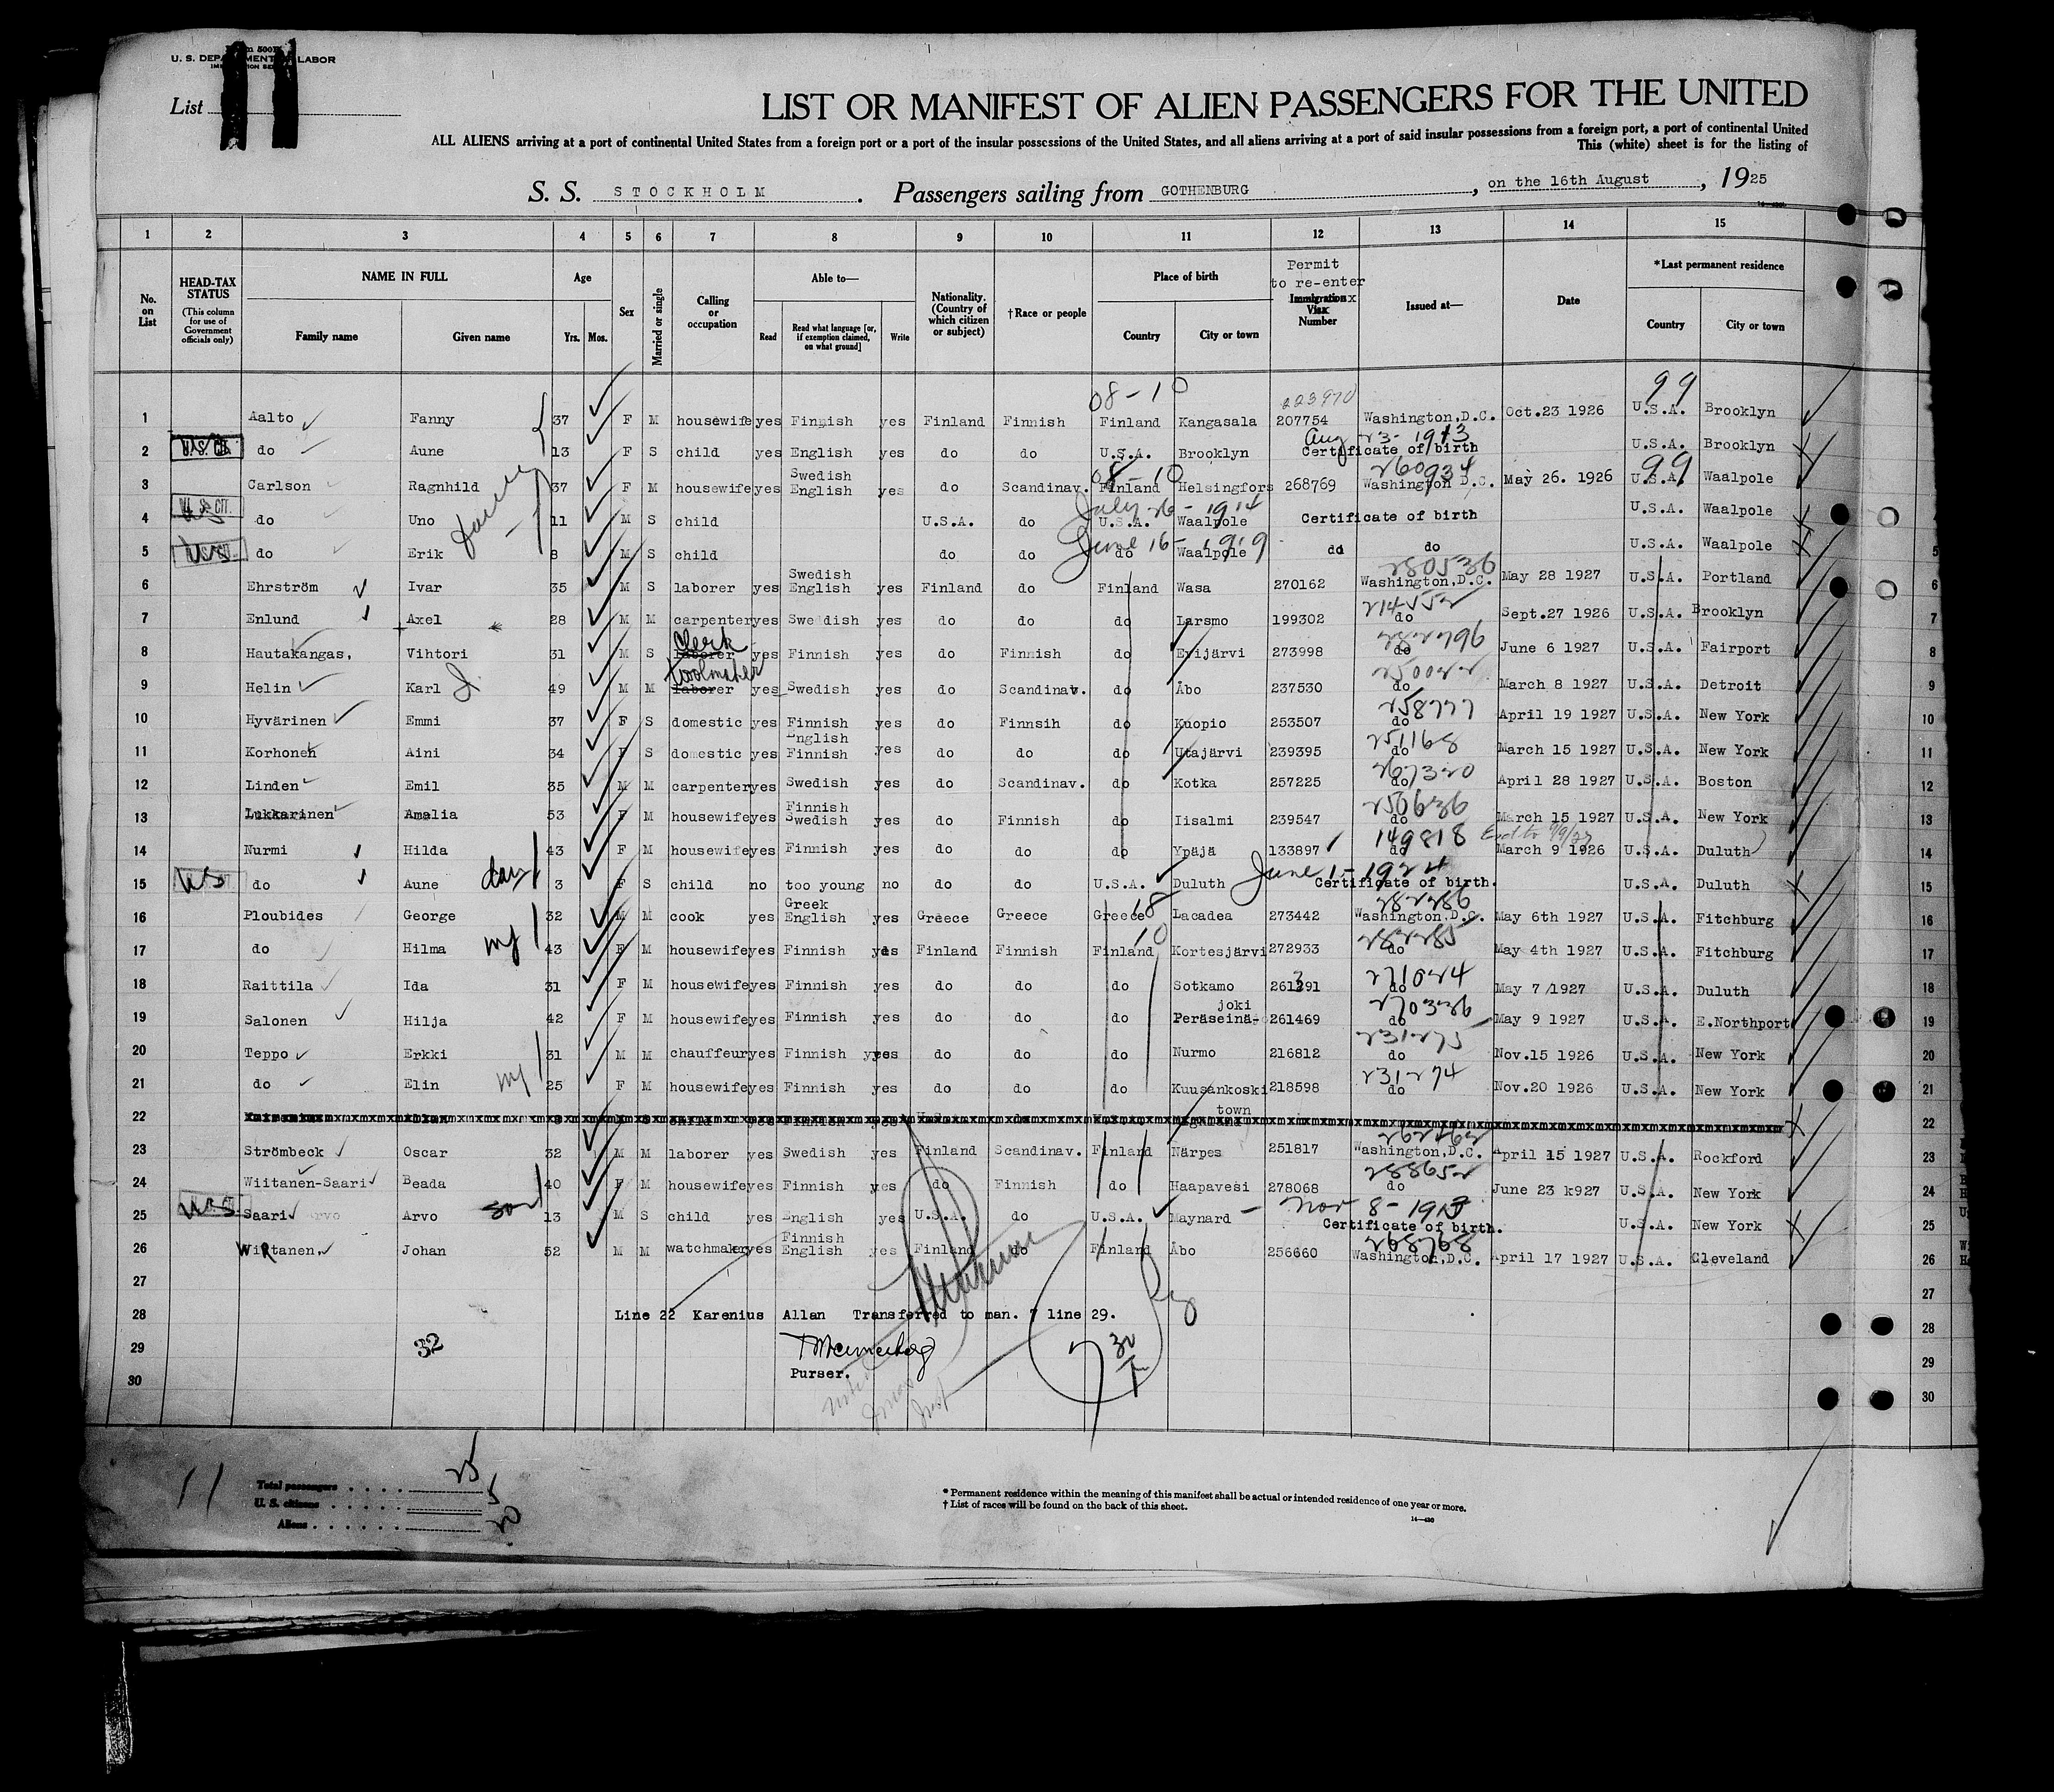 Form 500B
U. S. DEPARTMENT OF LABOR
IMMIGRATION SERVICE
List 11
LIST OR MANIFEST OF ALIEN PASSENGERS FOR THE UNITED
ALL ALIENS arriving at a port of continental United States from a foreign port or a port of the insular possessions of the United States, and all aliens arriving at a port of said insular possessions from a foreign port, a port of continental United
This (white) sheet is for the listing of
S. S. STOCKHOLM. Passengers sailing from GOTHENBURG, on the 16th August, 1925
1 2 3 4 5 6 7 8 9 10 11 12 13 14 15
No. on List
HEAD-TAX STATUS (This column for use of Government officials only)
NAME IN FULL Family name Given name
Age Yrs. Mos.
Sex
Married or single
Calling or occupation
Able to— Read Read what language [or, if exemption claimed, on what ground] Write
Nationality. (Country of which citizen or subject)
†Race or people
Place of birth Country City or town
Permit to re-enter Immigration Visa Number
Issued at—
Date
*Last permanent residence Country City or town
08-10 223970 99
1 Aalto Fanny 37 F M housewife yes Finnish yes Finland Finnish Finland Kangasala 207754 Washington,D.C. Oct.23 1926 U.S.A. Brooklyn
Aug 23-1913
2 U.S. CIT. do Aune 13 F S child yes English yes do do U.S.A. Brooklyn Certificate of birth U.S.A. Brooklyn
08-10 260934 99
3 Carlson Ragnhild 37 F M housewife yes Swedish English yes do Scandinav. Finland Helsingfors 268769 Washington D.C. May 26. 1926 U.S.A. Waalpole
July 26-1914
4 U.S. CIT. do Uno 11 M S child U.S.A. do U.S.A. Waalpole Certificate of birth U.S.A. Waalpole
June 16-1919
5 U.S. CIT. do Erik 8 M S child do do do Waalpole dd do U.S.A. Waalpole
280536
6 Ehrström Ivar 35 M S laborer yes Swedish English yes Finland do Finland Wasa 270162 Washington,D.C. May 28 1927 U.S.A. Portland
214552
7 Enlund Axel 28 M M carpenter yes Swedish yes do do do Larsmo 199302 do Sept.27 1926 U.S.A. Brooklyn
Clerk 282796
8 Hautakangas, Vihtori 31 M S laborer yes Finnish yes do Finnish do Evijärvi 273998 do June 6 1927 U.S.A. Fairport
toolmaker 250022
9 Helin Karl J. 49 M M laborer yes Swedish yes do Scandinav. do Åbo 237530 do March 8 1927 U.S.A. Detroit
258777
10 Hyvärinen Emmi 37 F S domestic yes Finnish yes do Finnsih do Kuopio 253507 do April 19 1927 U.S.A. New York
251168
11 Korhonen Aini 34 F S domestic yes English Finnish yes do do do Utajärvi 239395 do March 15 1927 U.S.A. New York
267320
12 Linden Emil 35 M M carpenter yes Swedish yes do Scandinav. do Kotka 257225 do April 28 1927 U.S.A. Boston
250636
13 Lukkarinen Amalia 53 F M housewife yes Finnish Swedish yes do Finnish do Iisalmi 239547 do March 15 1927 U.S.A. New York
149818
14 Nurmi Hilda 43 F M housewife yes Finnish yes do do do Ypäjä 133897 do March 9 1926 U.S.A. Duluth
June 1-1924
15 US do Aune dau 3 F S child no too young no do do U.S.A. Duluth Certificate of birth. U.S.A. Duluth
18 282286
16 Ploubides George 32 M M cook yes Greek English yes Greece Greece Greece Lacadea 273442 Washington,D.C. May 6th 1927 U.S.A. Fitchburg
10 282285
17 do Hilma 43 F M housewife yes Finnish yes Finland Finnish Finland Kortesjärvi 272933 do May 4th 1927 U.S.A. Fitchburg
271024
18 Raittila Ida 31 F M housewife yes Finnish yes do do do Sotkamo 261391 do May 7 1927 U.S.A. Duluth
270326
19 Salonen Hilja 42 F M housewife yes Finnish yes do do do Peräseinä-joki 261469 do May 9 1927 U.S.A. E.Northport
231275
20 Teppo Erkki 31 M M chauffeur yes Finnish yes do do do Nurmo 216812 do Nov.15 1926 U.S.A. New York
231274
21 do Elin 25 F M housewife yes Finnish yes do do do Kuusankoski 218598 do Nov.20 1926 U.S.A. New York
22 child yes Finnish yes do town
262462
23 Strömbeck Oscar 32 M M laborer yes Swedish yes Finland Scandinav. Finland Närpes 251817 Washington,D.C. April 15 1927 U.S.A. Rockford
288652
24 Wiitanen-Saari Beada 40 F M housewife yes Finnish yes do Finnish do Haapavesi 278068 do June 23 k927 U.S.A. New York
Nov 8-1913
25 US Saari Arvo son 13 M S child yes English yes U.S.A. do U.S.A. Maynard Certificate of birth. U.S.A. New York
268768
26 Wirtanen, Johan 52 M M watchmaker yes Finnish English yes Finland do Finland Åbo 256660 Washington,D.C. April 17 1927 U.S.A. Cleveland
27
28 Line 22 Karenius Allan Transferred to man. 7 line 29.
29 32
30 Purser.
11
Total passengers 25
U. S. citizens 5
Aliens 20
* Permanent residence within the meaning of this manifest shall be actual or intended residence of one year or more.
† List of races will be found on the back of this sheet.
14—430